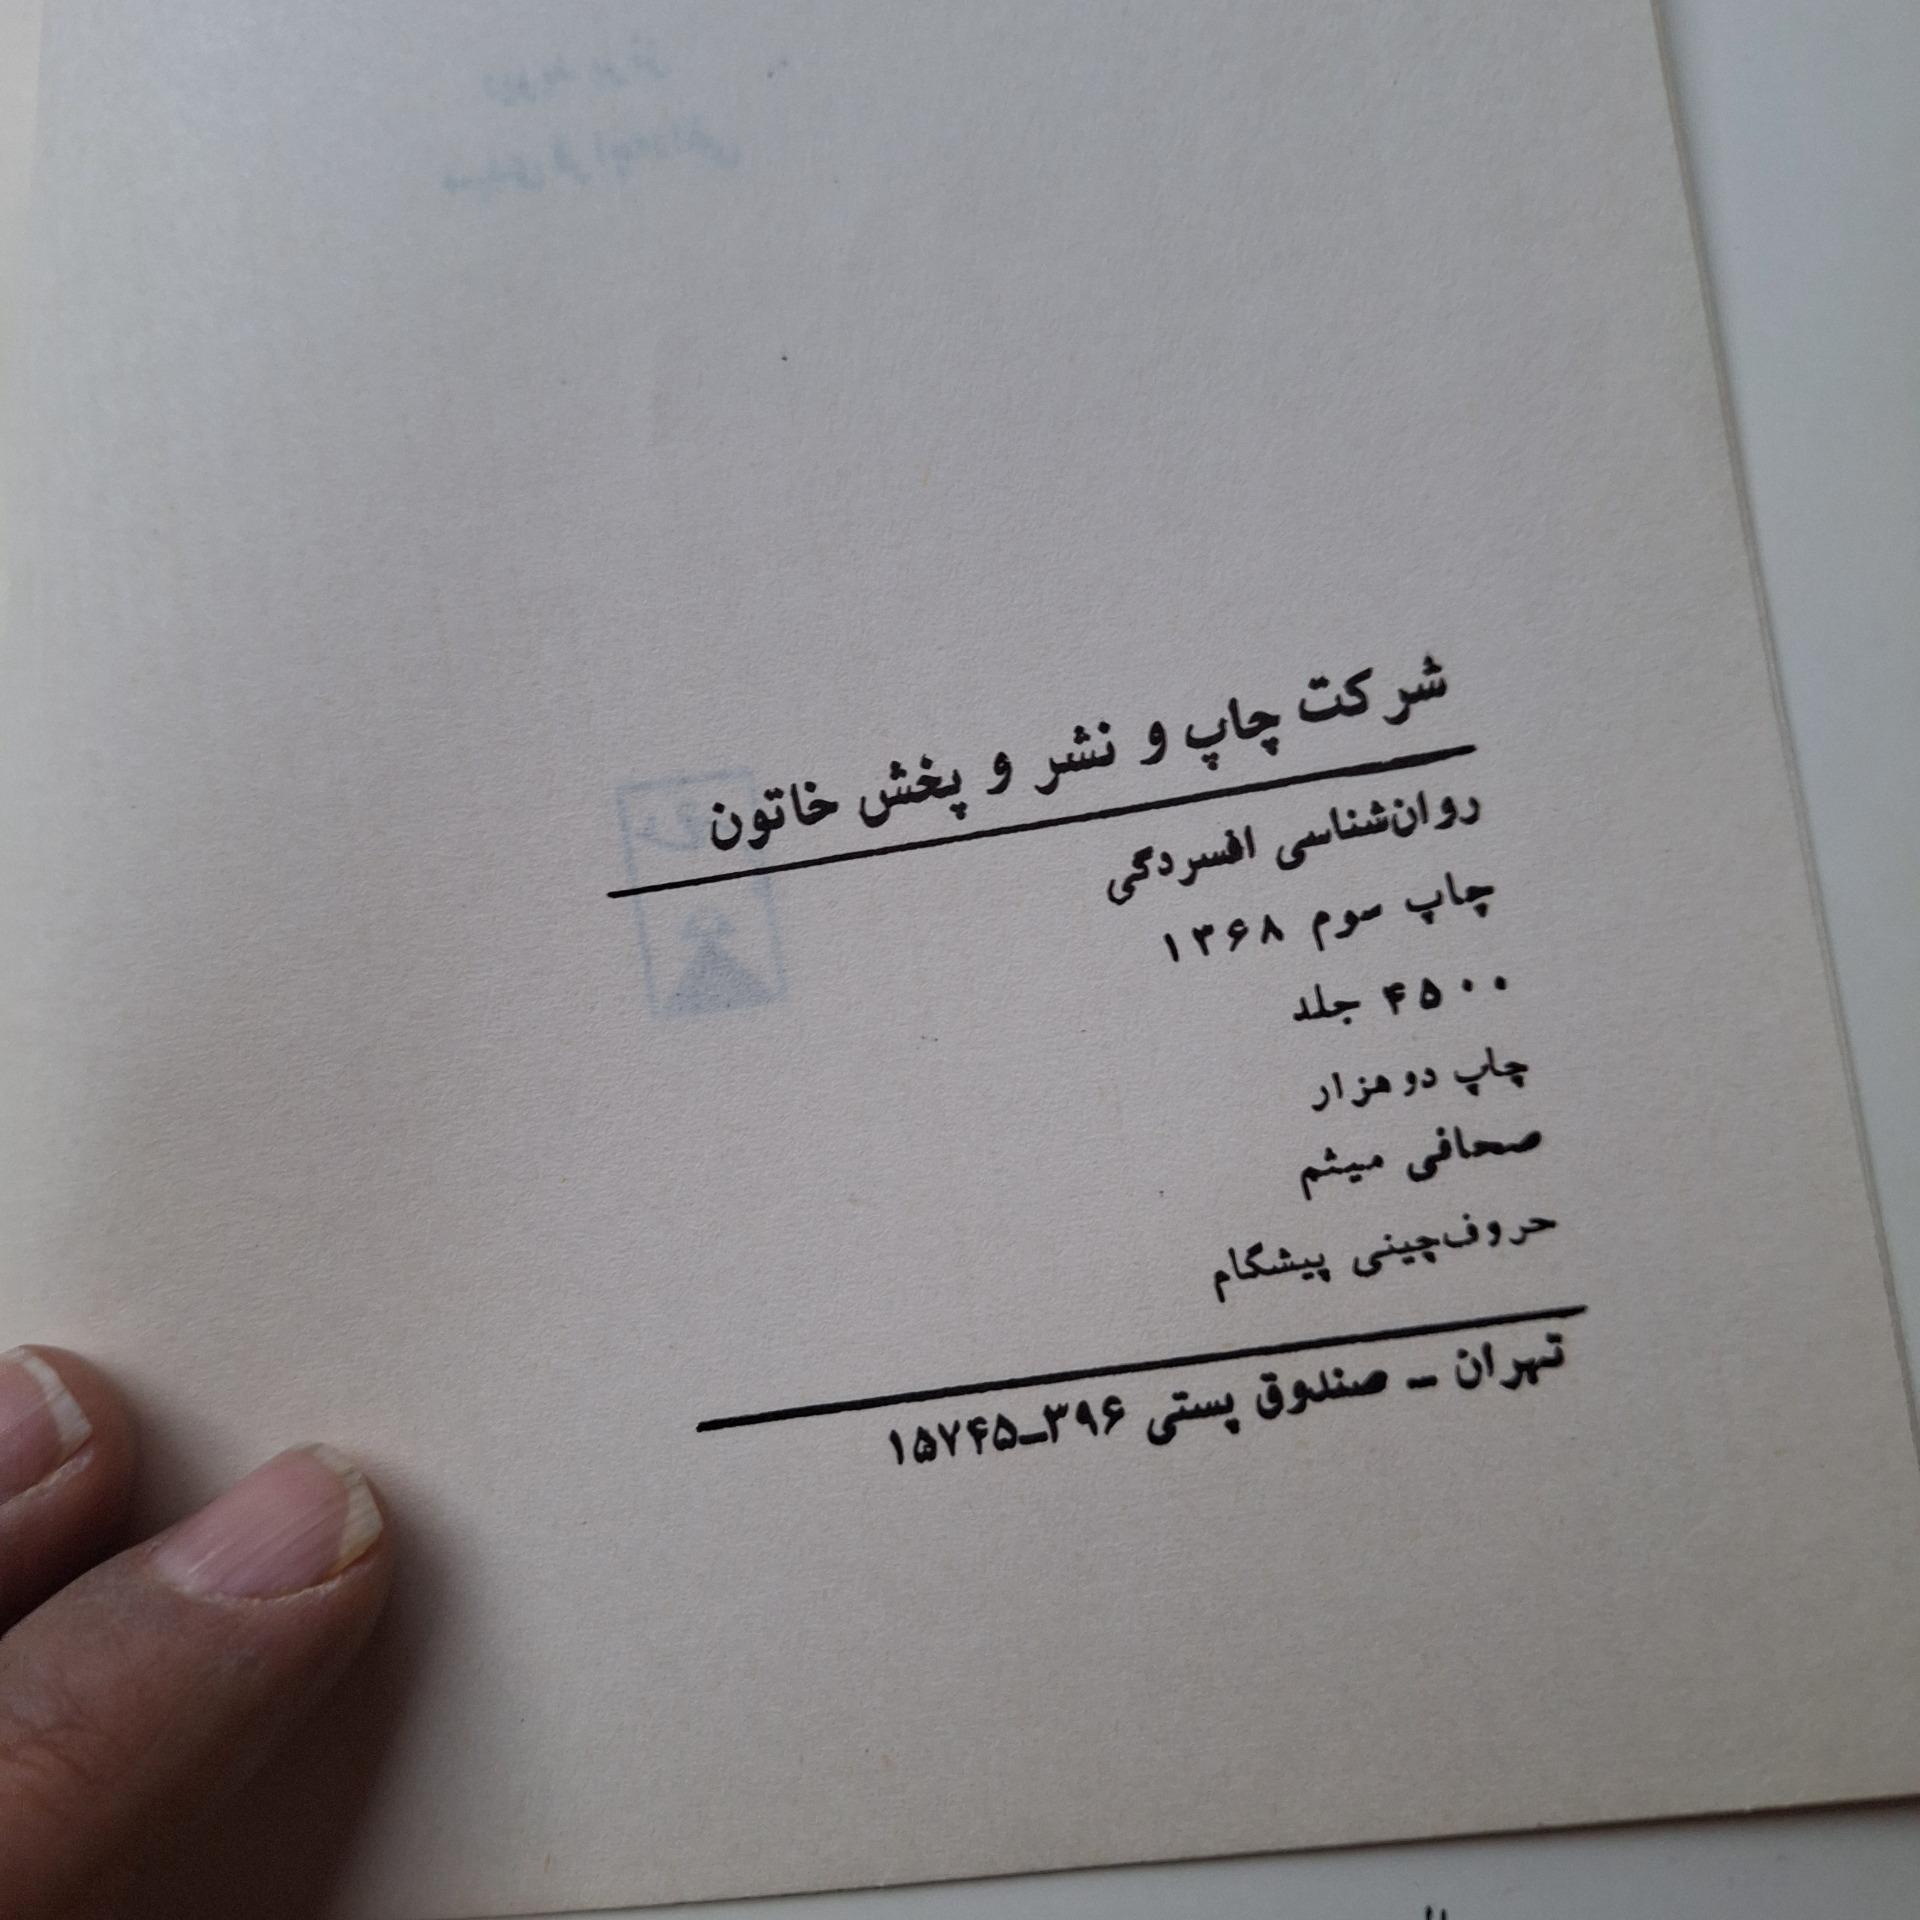 شرکت چاپ و نشر و پخش خاتون
روان‌شناسی افسردگی
چاپ سوم ۱۳۶۸
۴۵۰۰ جلد
چاپ دوهزار
صحافی میثم
حروف‌چینی پیشگام
تهران ـ صندوق پستی ۳۹۶ـ۱۵۷۴۵